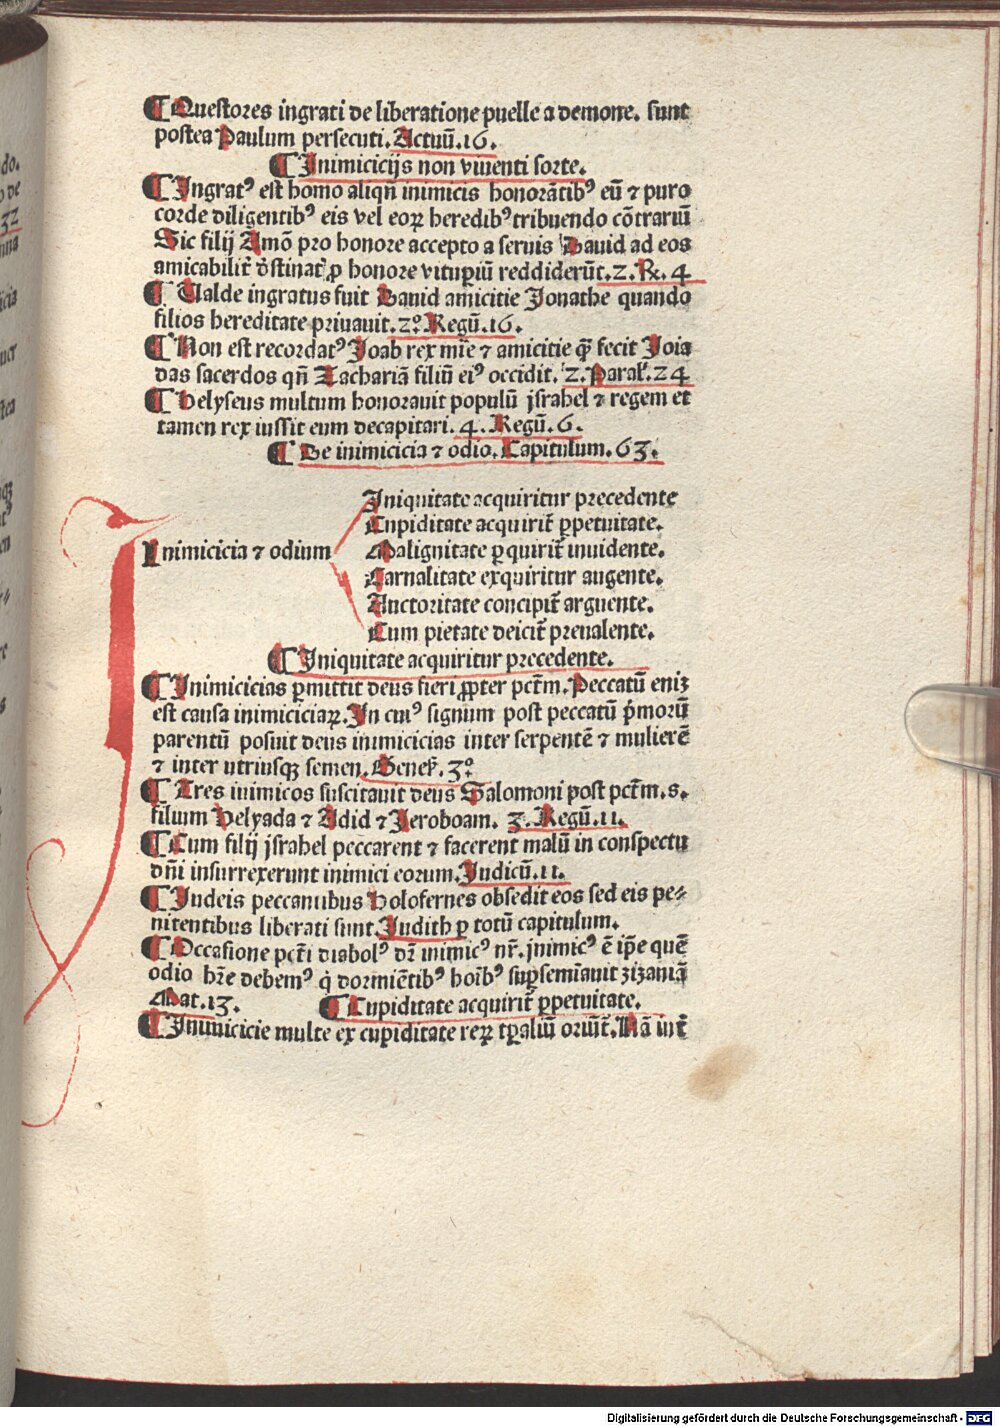 ¶ Questores ingrati de liberatione puelle a demone. sunt
postea Paulum persecuti. Actuū.16.
¶ Inimicicijs non viuenti sorte.
¶ Ingratꝰ est homo aliqñ inimicis honorātibꝰ eū ⁊ puro
corde diligentibꝰ eis vel eoꝝ heredibꝰ tribuendo cōtrariū
Sic filij Amō pro honore accepto a seruis Dauid ad eos
amicabilit̄ d̄stinat̄ ꝓ honore vitupiū reddiderūt.2.Rꝫ.4
¶ Ualde ingratus fuit Dauid amicitie Jonathe quando
filios hereditate priuauit.2º.Regū.16.
¶ Non est recordatꝰ Joab rex mīe ⁊ amicitie q̄ fecit Joia
das sacerdos qñ Zachariā filiū eiꝰ occidit. 2.Paral̓.24
¶ Helyseus multum honorauit populū jsrahel ⁊ regem et
tamen rex iussit eum decapitari. 4. Regū.6.
¶ De inimicicia ⁊ odio. Capitulum.63.
Iniquitate acquiritur precedente
Cupiditate acquirit̄ ꝑpetuitate.
Inimicicia ⁊ odium
Malignitate ꝑquirit̄ inuidente.
Carnalitate exquiritur augente.
Auctoritate concipit̄ arguente.
Cum pietate deicit̄ preualente.
¶ Iniquitate acquiritur precedente.
¶ Inimicicias ꝑmittit deus fieri ꝓpter pct̄m. Peccatū eniꝫ
est causa inimiciciaꝝ. In cuiꝰ signum post peccatū p̄moꝝ
parentū posuit deus inimicicias inter serpentē ⁊ mulierē
⁊ inter utriusqꝫ semen. Genes̓.3º
¶ Tres inimicos suscitauit deus Salomoni post pct̄m.s.
filium Helyada ⁊ Adid ⁊ Jeroboam. 3.Regū.11.
¶ Cum filij jsrahel peccarent ⁊ facerent malū in conspectu
dñi insurrexerunt inimici eorum. Judicū.11.
¶ Iudeis peccantibus Holofernes obsedit eos sed eis pe⸗
nitentibus liberati sunt. Judith ꝑ totū capitulum.
¶ Occasione pct̄i diabolꝰ dr̄ inimicꝰ nr̄. jnimicꝰ ē ip̄e quē
odio hr̄e debemꝰ q̇ dormiētibꝰ hoībꝰ suꝑsemīauit zizania
Mat.13. ¶ Cupiditate acquirit̄ ꝑpetuitate.
¶ Inimicicie multe ex cupiditate reꝝ tꝑaliū oriūt̄. Nā int̄
Digitalisierung gefördert durch die Deutsche Forschungsgemeinschaft - DFG